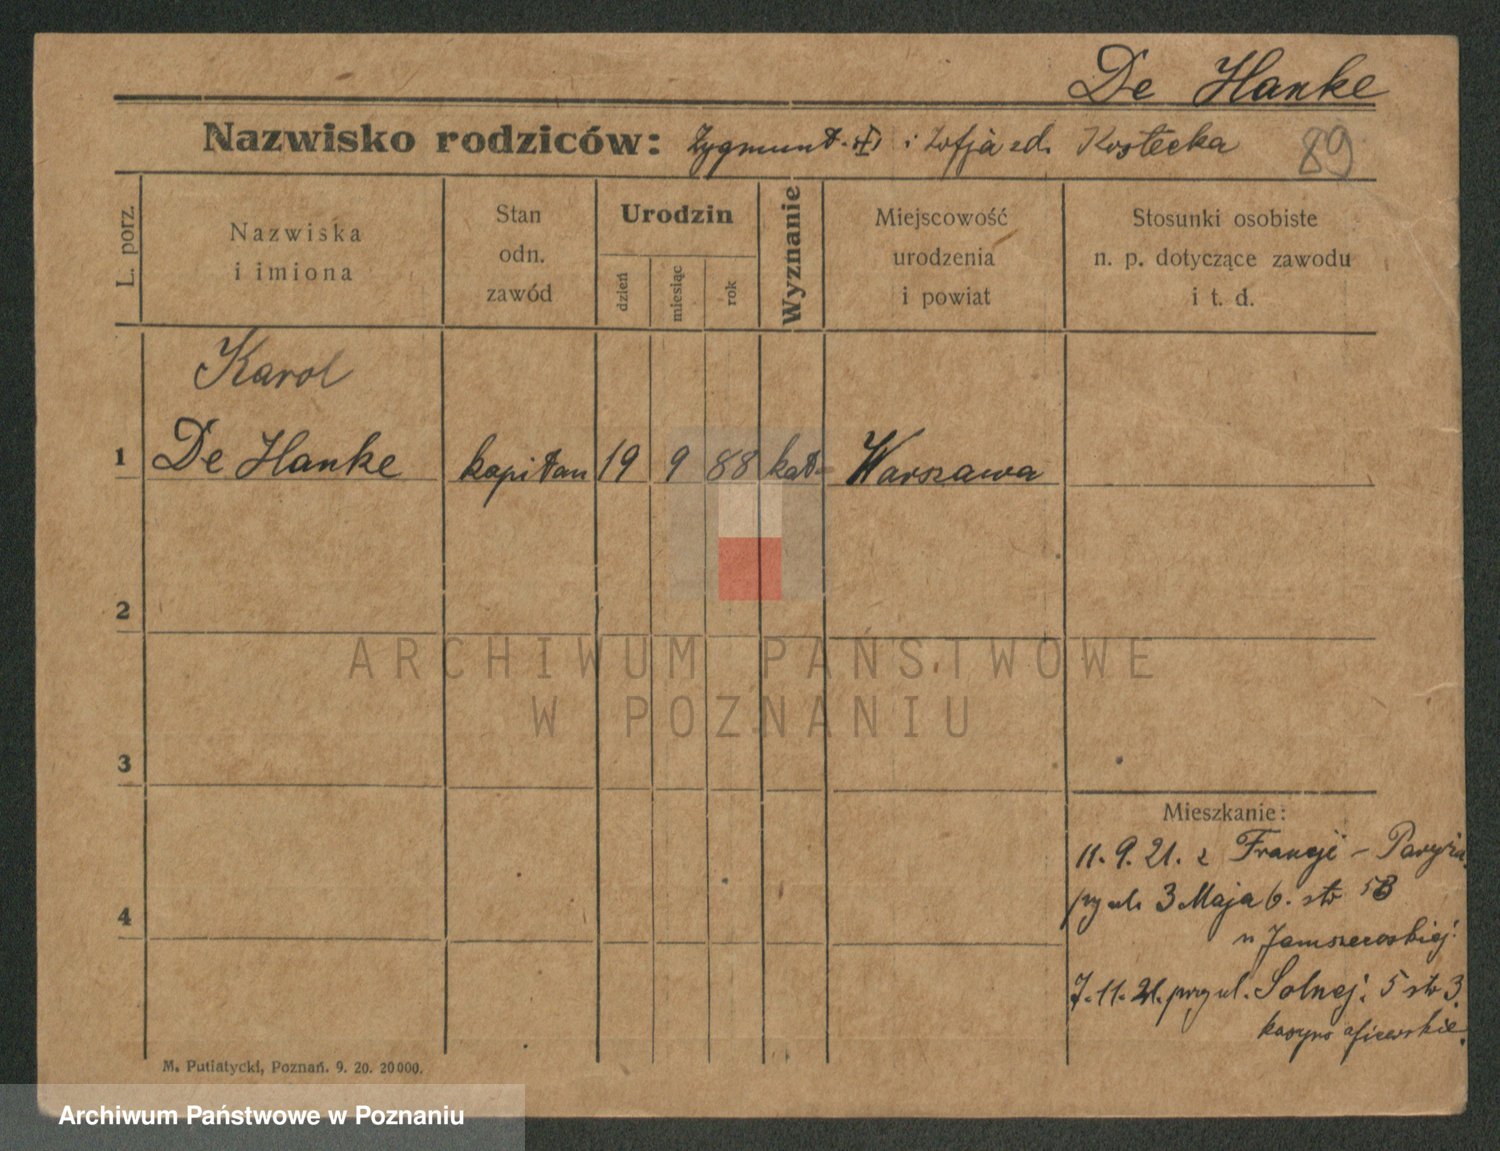 De Hanke
Nazwisko rodziców: Zygmunt i Zofja zd. Kostecka
89
L. porz.
Nazwiska
i imiona
Stan
odn.
zawód
Urodzin
dzień
miesiąc
rok
Wyznanie
Miejscowość
urodzenia
i powiat
Stosunki osobiste
n. p. dotyczące zawodu
i t. d.
Karol
1 De Hanke kapitan 19 9 88 kat. Warszawa
2
ARCHIWUM PAŃSTWOWE
W POZNANIU
3
Mieszkanie:
11. 9. 21. z Francji - Paryża
4 przy ul. 3 Maja 6. str 5B
7. 11. 21. przy ul. Solnej. 5 str 3.
kasyno oficerskie.
M. Putiatycki, Poznań. 9. 20. 20 000.
Archiwum Państwowe w Poznaniu